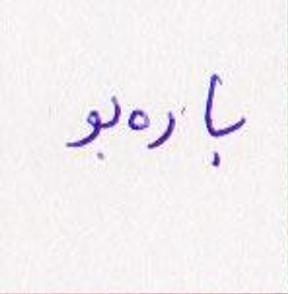 بارەبو